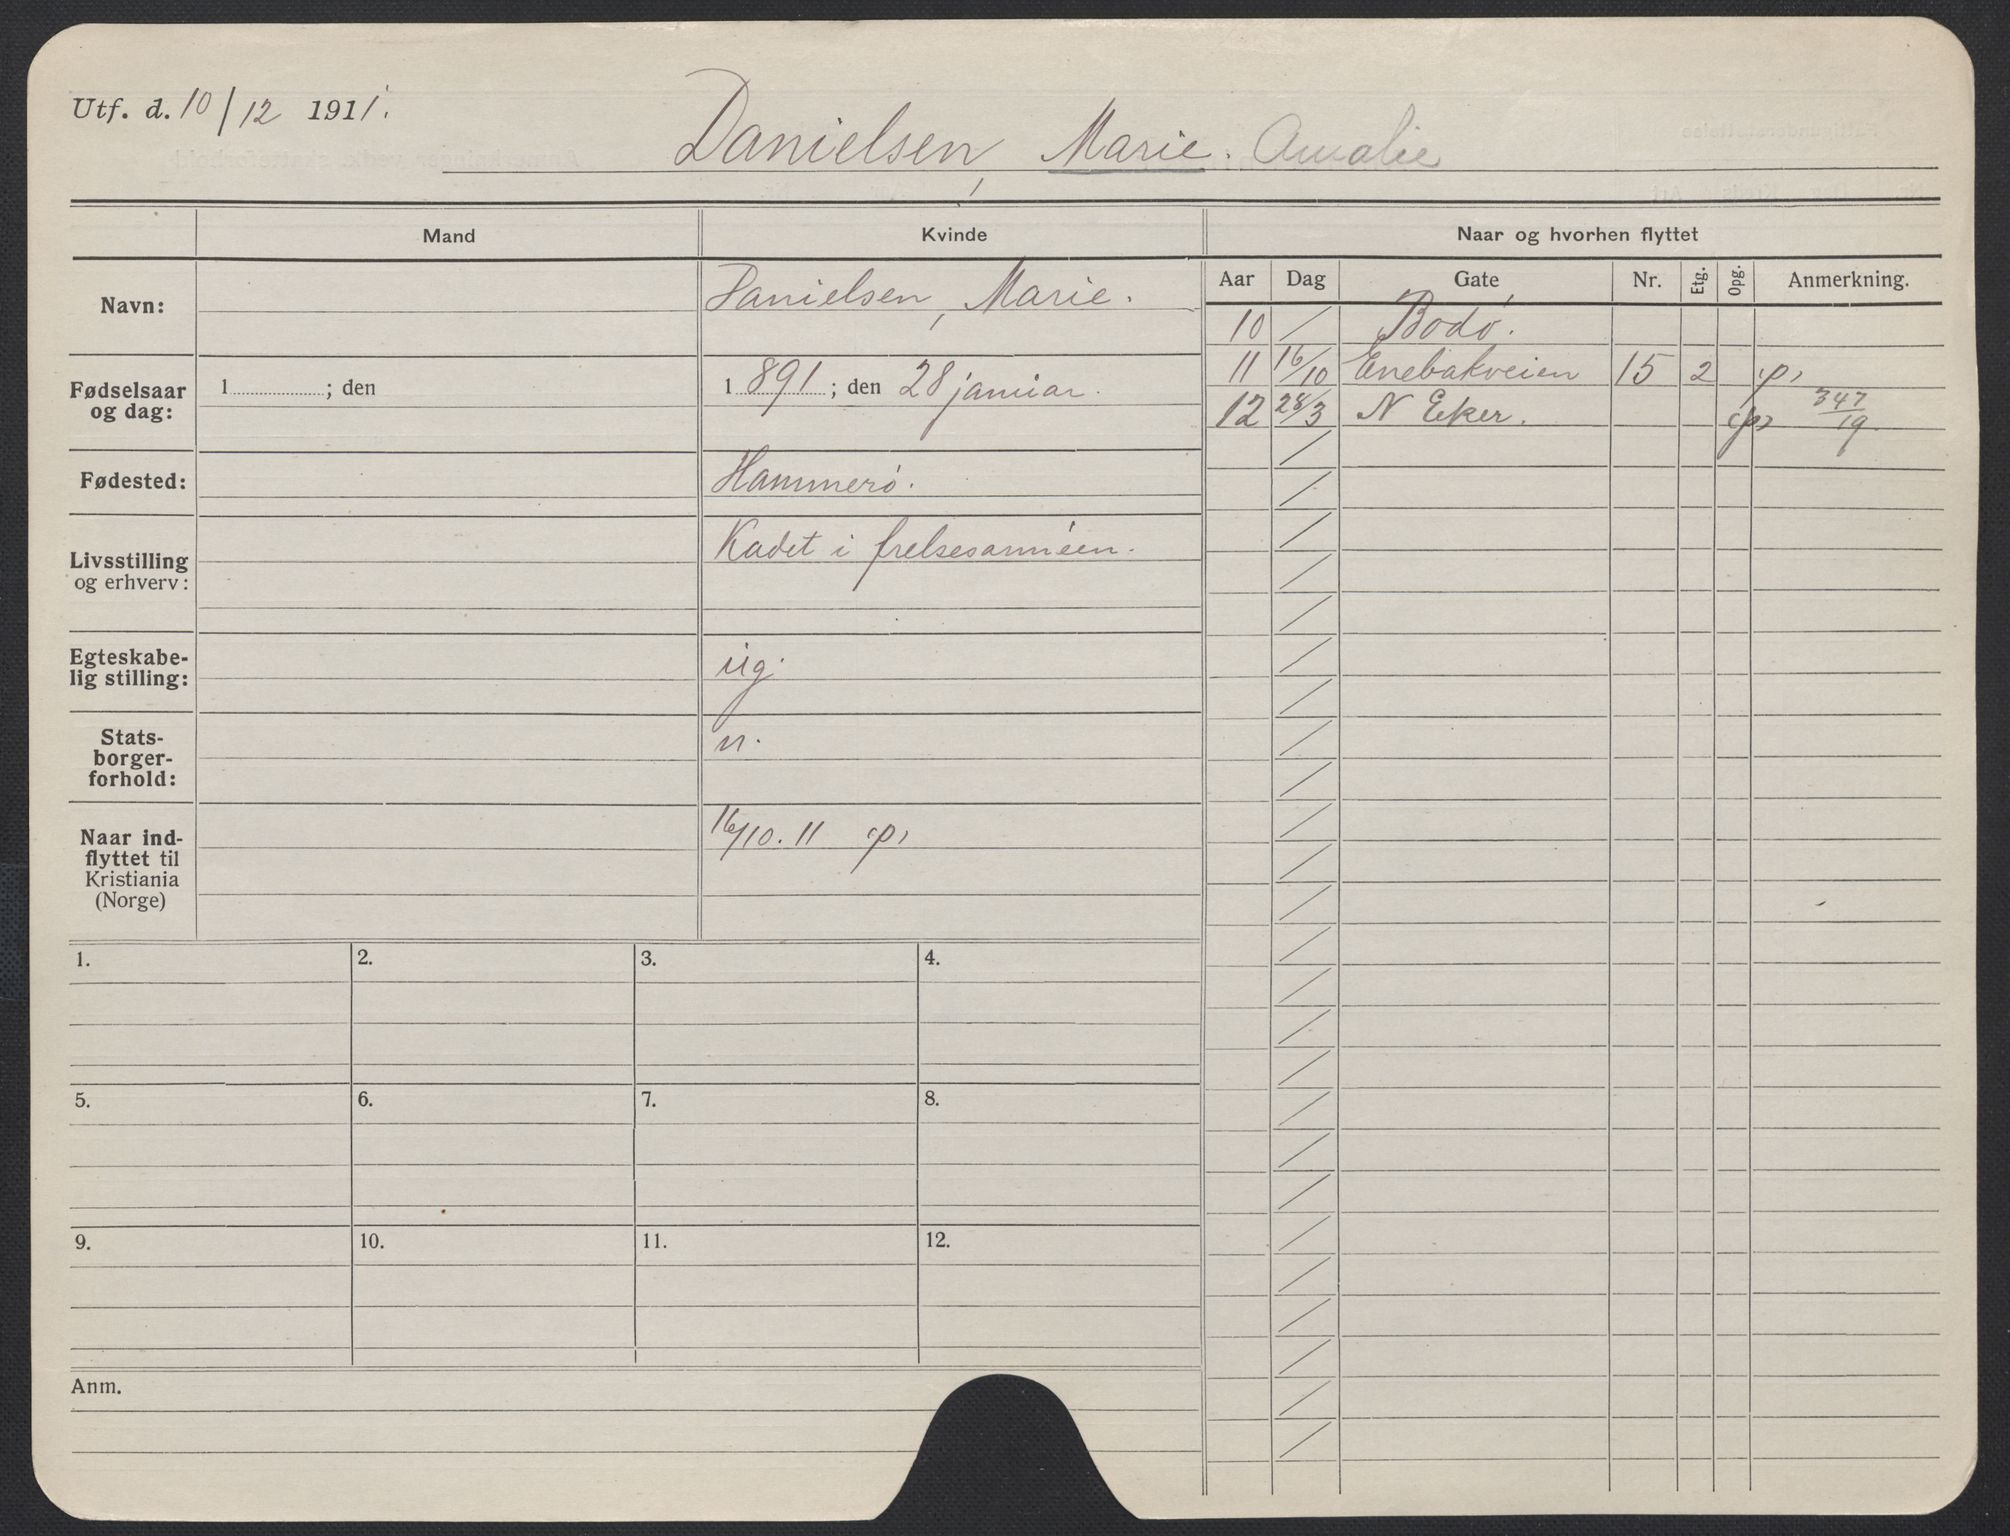 Utf. d. 10/12 1911.
Danielsen, Marie. Amalie
Mand
Kvinde
Naar og hvorhen flyttet
Navn:
Danielsen, Marie.
Fødselsaar og dag:
1 ; den
1 891 ; den 28 januar.
Fødested:
Hammerö.
Livsstilling og erhverv:
Kadet i frelsesarméen.
Egteskabe-
lig stilling:
ug.
Stats-
borger-
forhold:
n.
Naar ind-
flyttet til
Kristiania
(Norge)
16/10. 11 (p)
Aar Dag Gate Nr. Etg. Opg. Anmerkning.
10 / Bodö.
11 16/10 Enebakveien 15 2 (p)
12 28/3 N Eker. (p) 347/19.
1. 2. 3. 4.
5. 6. 7. 8.
9. 10. 11. 12.
Anm.